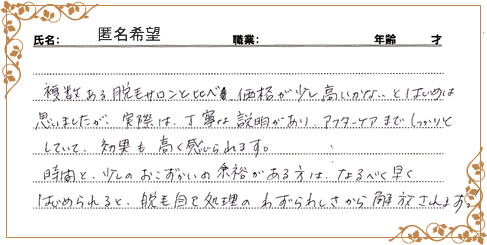 氏名： 匿名希望 職業： 年齢 才
複数ある脱毛サロンと比べ 価格が少し高いかな… とはじめは
思いましたが、実際は、丁寧な説明があり、アフターケアまでしっかりと
していて、効果も高く感じられます。
時間と、少しのおこずかいの余裕がある方は、なるべく早く
はじめられると、脱毛自己処理のわずらわしさから解放されます。